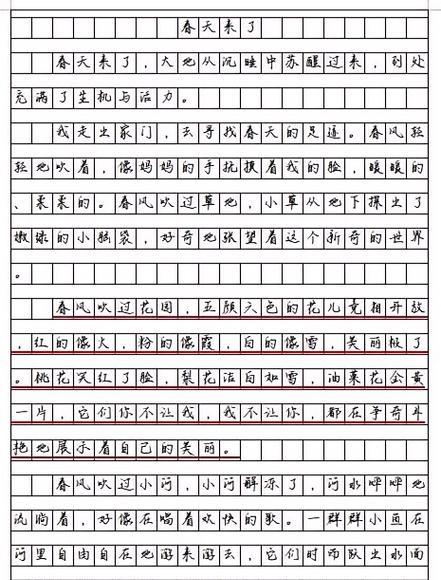 春天来了
春天来了，大地从沉睡中苏醒过来，到处
充满了生机与活力。
我走出家门，去寻找春天的足迹。春风轻
轻地吹着，像妈妈的手抚摸着我的脸，暖暖的
、柔柔的。春风吹过草地，小草从地下探出了
嫩绿的小脑袋，好奇地张望着这个新奇的世界
。
春风吹过花园，五颜六色的花儿竞相开放
，红的像火，粉的像霞，白的像雪，美丽极了
。桃花笑红了脸，梨花洁白如雪，油菜花金黄
一片，它们你不让我，我不让你，都在争奇斗
艳地展示着自己的美丽。
春风吹过小河，小河解冻了，河水哗哗地
流淌着，好像在唱着欢快的歌。一群群小鱼在
河里自由自在地游来游去，它们时而跃出水面